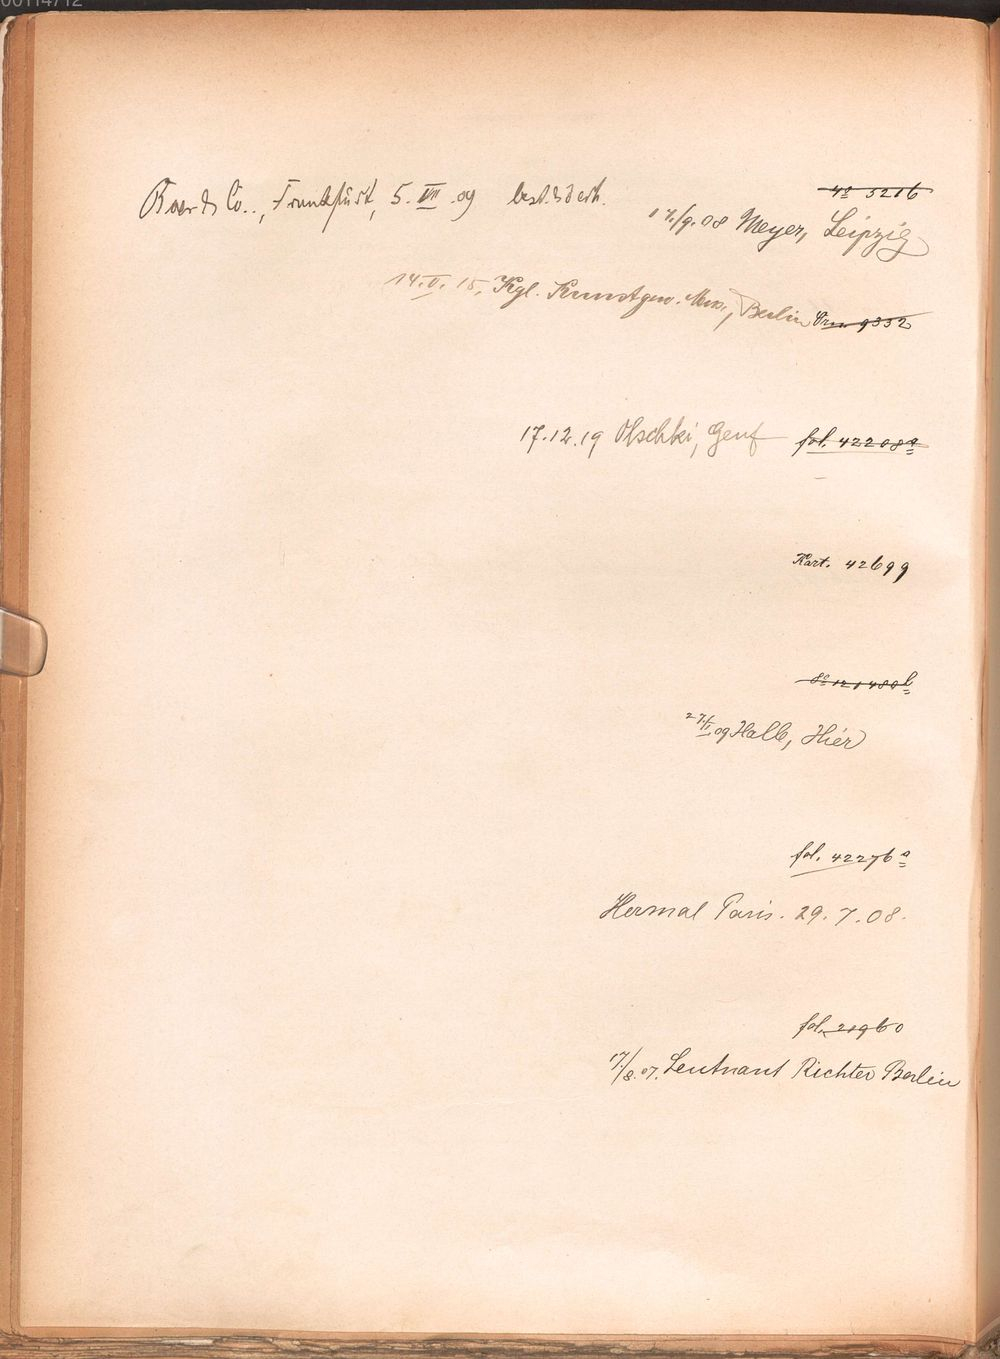 00114712
4° 5216
Baer & Co., Frankfurt, 5. VII. 09
17./9.08 Meyer, Leipzig
14.V.15, Kgl. Kunstgew. Mus., Berlin 9332
17.12.19 Olschki, Genf fol. 42208 a
Kart. 42699
8° 121480 l
09 Halle, Hier
fol. 42276 a
Hermal Paris. 29.7.08.
fol. 21960
17/8.07. Leutnant Richter Berlin